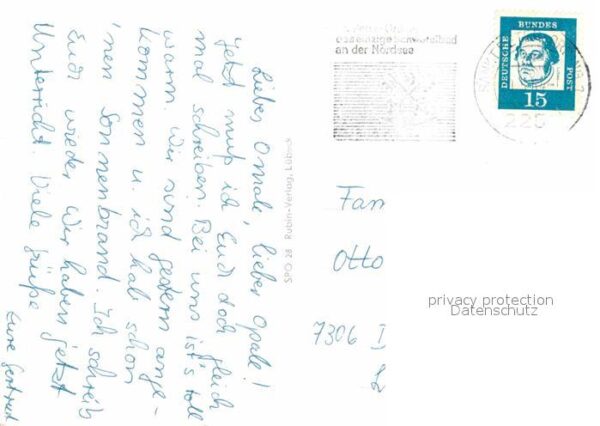 Liebe Omale, lieber Opale!
Jetzt muß ich Euch doch gleich
mal schreiben. Bei uns ist's toll
warm. Wir sind gestern ange-
kommen u. ich hab schon
'nen Sonnenbrand. Ich schreib
Euch wieder. Wir haben jetzt
Unterricht. Viele Grüße
Eure Gertrud
SPO 28 Rubin-Verlag, Lübeck
an der Nordsee
DEUTSCHE
BUNDES
POST
15
225
Fam
Otto
7306
privacy protection
Datenschutz